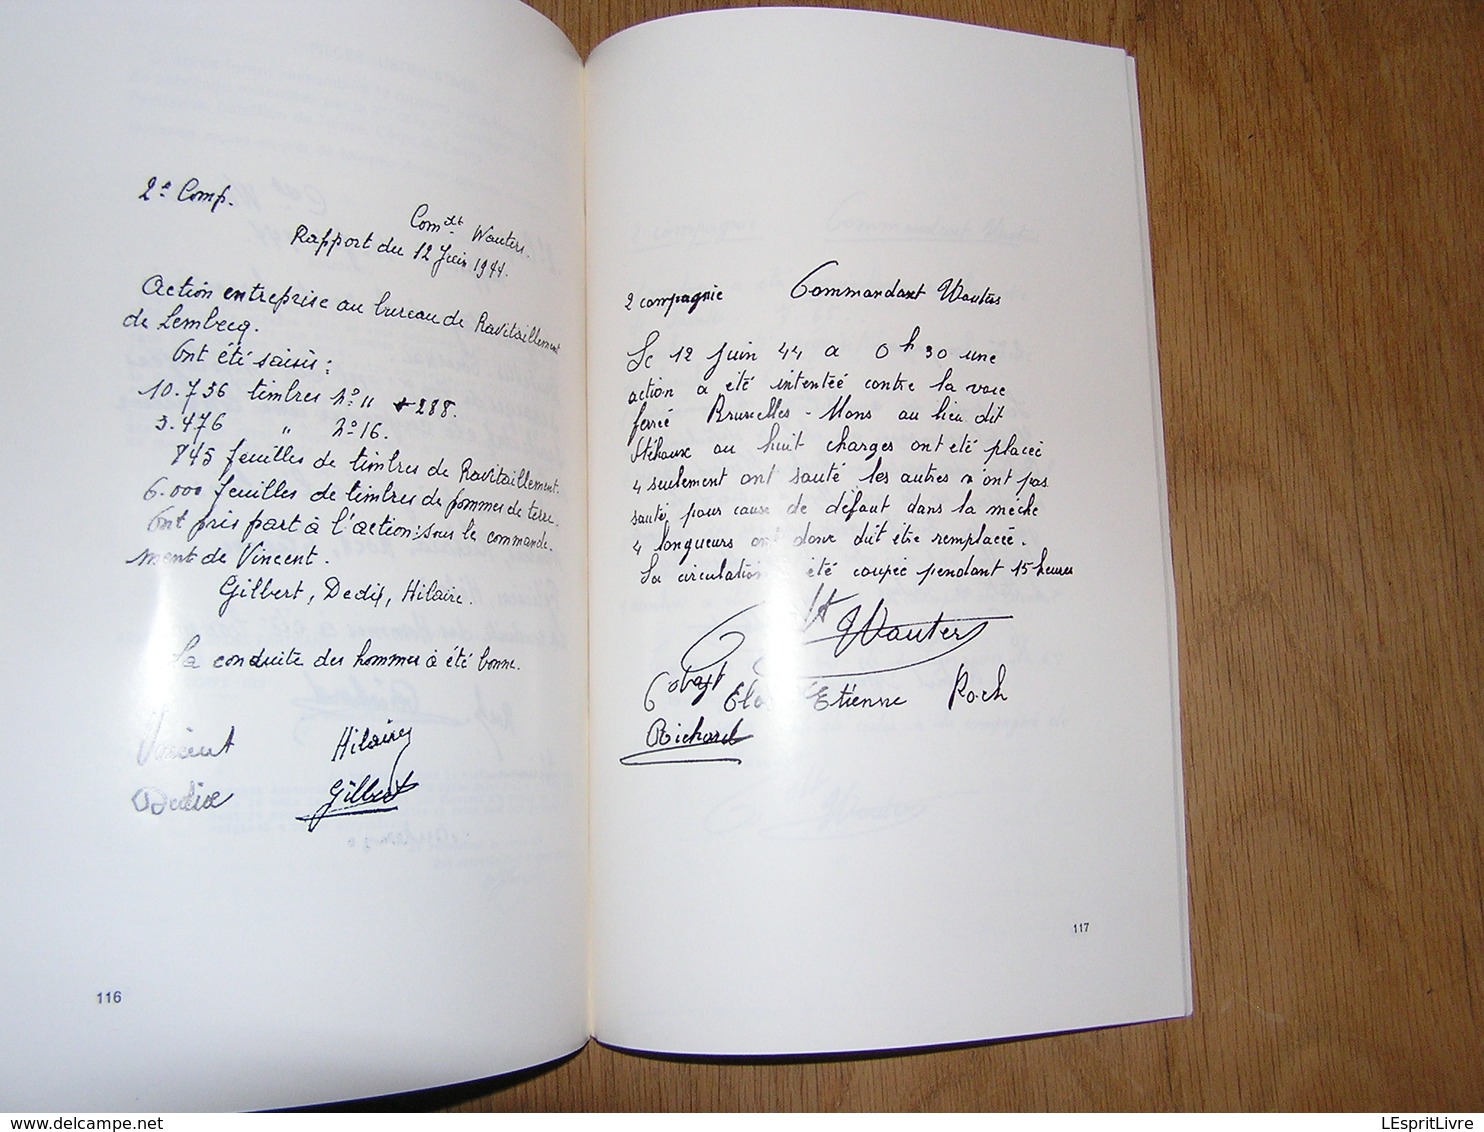 2e Comp.
Comdt Wauters.
Rapport du 12 Juin 1944.
Action entreprise au bureau de Ravitaillement
de Lembecq.
Ont été saisis :
10.736 timbres No 11 + 288.
3.476 " No 16.
845 feuilles de timbres de Ravitaillement.
6.000 feuilles de timbres de pommes de terre.
Ont pris part à l'action : sous le commande-
ment de Vincent.
Gilbert, Dedix, Hilaire.
La conduite des hommes a été bonne.
Vincent Hilaire
Dedix Gilbert
116
2 compagnie Commandant Wauters
Le 12 Juin 44 a 0 h 30 une
action a été intentéé contre la voie
ferrée Bruxelles - Mons au lieu dit
Stéhoux au huit charges ont été placéé
4 seulement ont sauté les autres n'ont pas
sauté pour cause de défaut dans la mèche
4 longueurs ont donc dût être remplacée.
La circulation été coupée pendant 15 heures
Wauters
Etienne Roch
Richard
117
delcampe.net
LEspritLivre